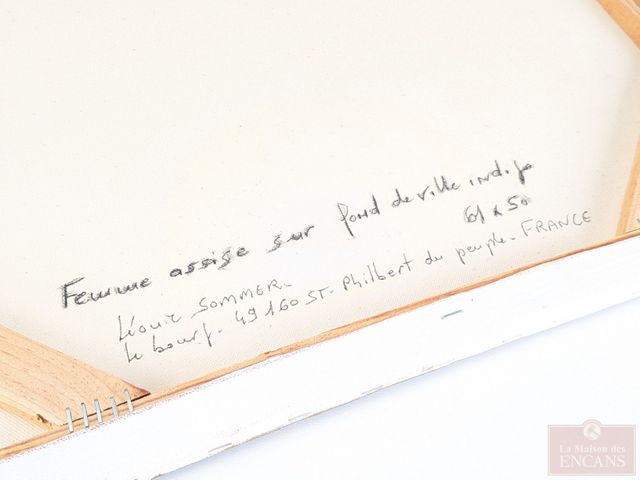 Femme assise sur fond de ville indigo
61 x 50
Léonie SOMMER.
Le bourg. 49160 ST. Philbert du peuple. FRANCE
La Maison des
ENCANS